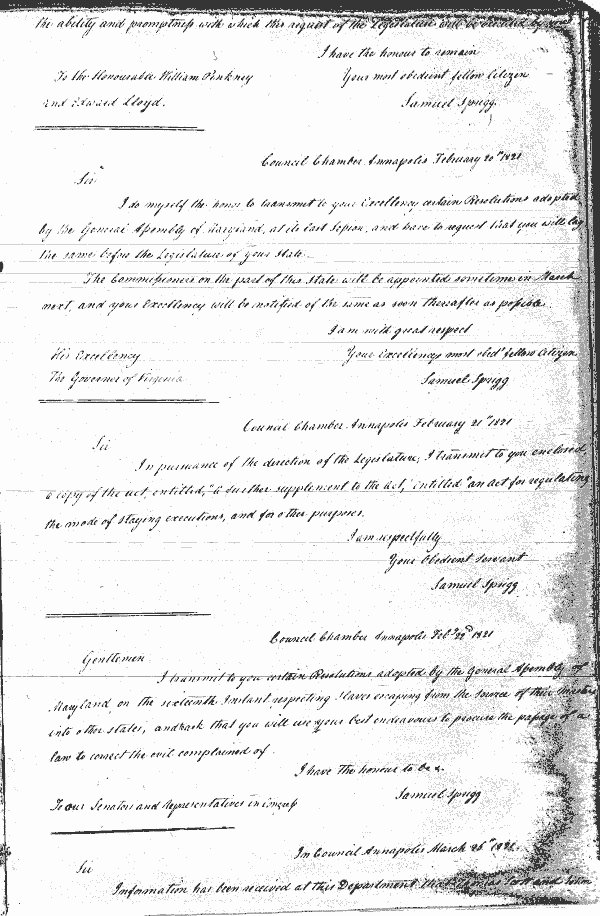 the ability and promptness with which this request of the Legislature will be
I have the honour to remain
To the Honourable William Pinkney
Your most obedient fellow Citizen
and Edward Lloyd.
Samuel Sprigg.
Council Chamber Annapolis February 20th 1821
Sir
I do myself the honor to transmit to your Excellency certain Resolutions adopted
by the General Assembly of Maryland, at its last Session, and have to request that you will lay
the same before the Legislature of your State.
The Commissioners on the part of this State will be appointed sometime in March
next, and your Excellency will be notified of the same as soon thereafter as possible.
I am with great respect
His Excellency
Your Excellencys most obedt fellow Citizen
The Governor of Virginia
Samuel Sprigg
Council Chamber Annapolis February 21st 1821
Sir
In pursuance of the direction of the Legislature, I transmit to you enclosed,
a copy of the act, entitled, "a further supplement to the act," entitled "an act for regulating
the mode of staying executions, and for other purposes.
I am respectfully
Your Obedient Servant
Samuel Sprigg
Council Chamber Annapolis Feby 22nd 1821
Gentlemen
I transmit to you certain Resolutions adopted by the General Assembly of
Maryland on the sixteenth Instant respecting Slaves escaping from the Source of their Masters
into other states, and ask that you will use your best endeavours to procure the passage of a
law to correct the evil complained of
I have the honour to be &.
Samuel Sprigg
To our Senators and Representatives in Congress
In Council Annapolis March 26th 1821.
Sir
Information has been received at this Department that and